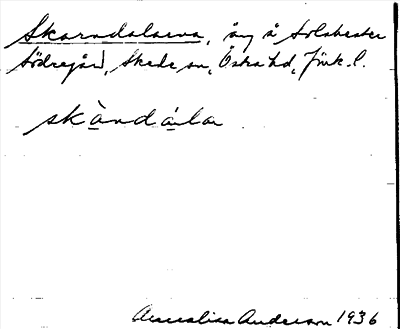 Skarudalarna, äng å Solaberter
Södregård, Skede sn, Östra hd, Jönk. l.
skàndála
Annalisa Anderson 1936